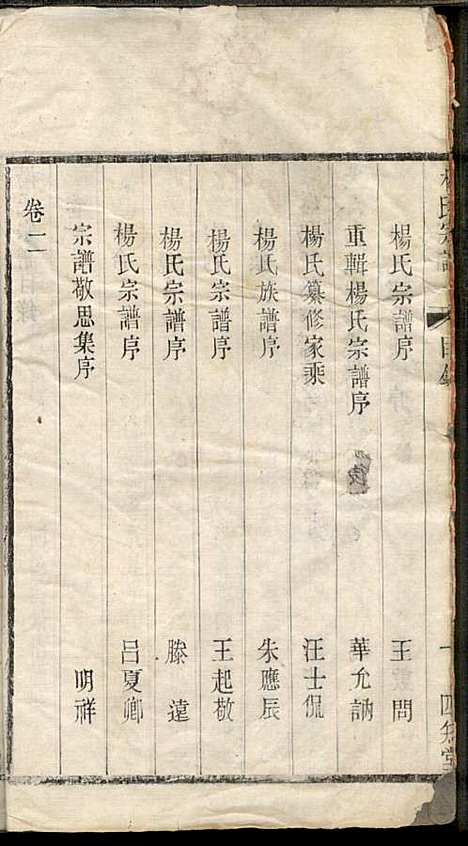 楊氏宗譜序 王問
重輯楊氏宗譜序 華允訥
楊氏纂修家乘 汪士侃
楊氏族譜序 朱應辰
楊氏宗譜序 王起敬
楊氏宗譜序 滕遠
楊氏宗譜序 呂夏卿
宗譜敬思集序 明祥
卷二